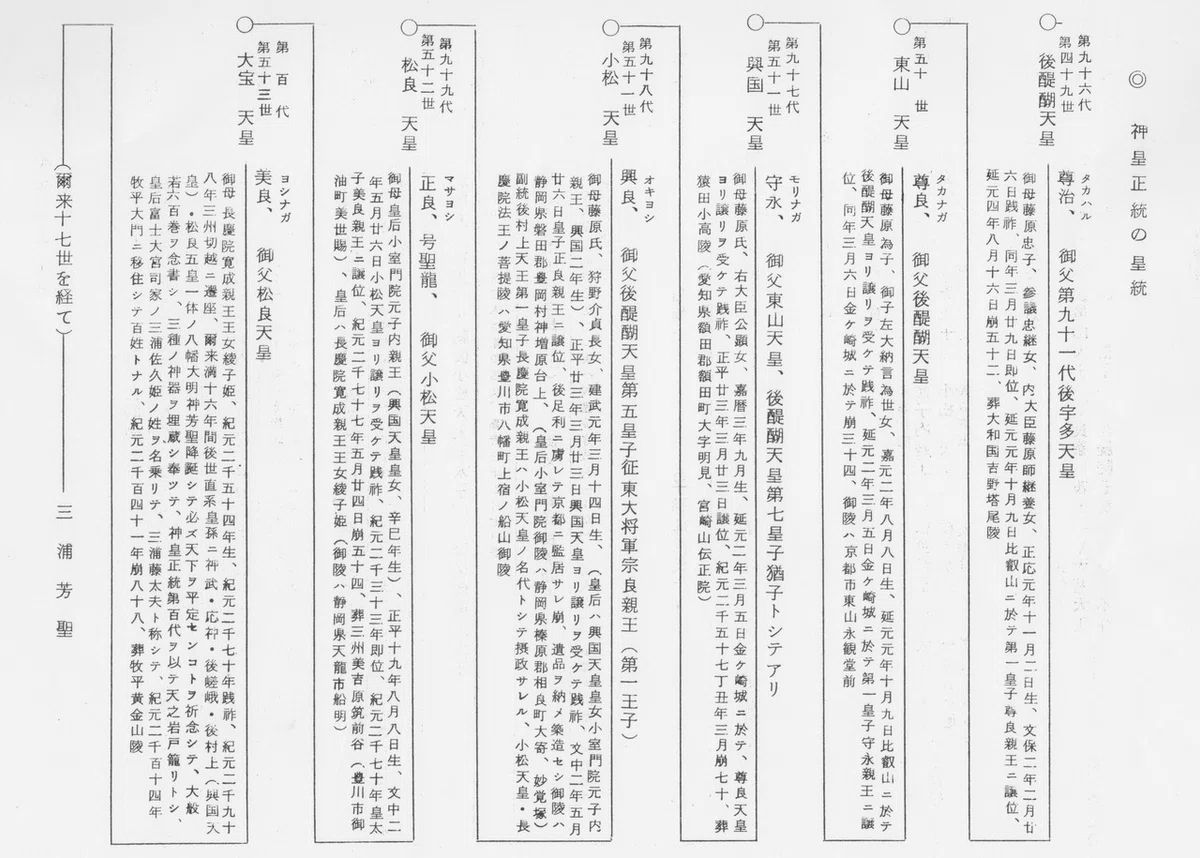 ◎ 神皇正統の皇統
第九十六代
第四十九世
後醍醐天皇
タカハル
尊治、 御父第九十一代後宇多天皇
御母藤原忠子、参議忠継女、内大臣藤原師継養女、正応元年十一月二日生、文保二年二月廿
六日践祚、同年三月廿九日即位、延元元年十月九日比叡山ニ於テ第一皇子尊良親王ニ譲位、
延元四年八月十六日崩五十二、葬大和国吉野塔尾陵
第五十世
東山 天皇
タカナガ
尊良、 御父後醍醐天皇
御母藤原為子、御子左大納言為世女、嘉元二年八月八日生、延元元年十月九日比叡山ニ於テ
後醍醐天皇ヨリ譲リヲ受ケテ践祚、延元二年三月五日金ケ崎城ニ於テ第一皇子守永親王ニ譲
位、同年三月六日金ケ崎城ニ於テ崩三十四、御陵ハ京都市東山永観堂前
第九十七代
第五十一世
興国 天皇
モリナガ
守永、 御父東山天皇、後醍醐天皇第七皇子猶子トシテアリ
御母藤原氏、右大臣公顕女、嘉暦三年九月生、延元二年三月五日金ケ崎城ニ於テ、尊良天皇
ヨリ譲リヲ受ケテ践祚、正平廿三年三月廿三日譲位、紀元二千五十七丁丑年三月崩七十、葬
猿田小高陵（愛知県額田郡額田町大字明見、宮崎山伝正院）
第九十八代
第五十一世
小松 天皇
オキヨシ
興良、 御父後醍醐天皇第五皇子征東大将軍宗良親王（第一王子）
御母藤原氏、狩野介貞長女、建武元年三月十四日生、（皇后ハ興国天皇皇女小室門院元子内
親王、興国二年生）、正平廿三年三月廿三日興国天皇ヨリ譲リヲ受ケテ践祚、文中二年五月
廿六日皇子正良親王ニ譲位、後足利ニ虜レテ京都ニ監居サレ崩、遺品ヲ納メ築造セシ御陵ハ
静岡県磐田郡豊岡村神増原台上、（皇后小室門院御陵ハ静岡県榛原郡相良町大寄、妙覚塚）
副統後村上天王第一皇子長慶院寛成親王ハ小松天皇ノ名代トシテ摂政サレル、小松天皇・長
慶院法王ノ菩提陵ハ愛知県豊川市八幡町上宿ノ船山御陵
第九十九代
第五十二世
松良 天皇
マサヨシ
正良、 号聖龍、 御父小松天皇
御母皇后小室門院元子内親王（興国天皇皇女、辛巳年生）、正平十九年八月八日生、文中二
年五月廿六日小松天皇ヨリ譲リヲ受ケテ践祚、紀元二千三十三年即位、紀元二千七十年皇太
子美良親王ニ譲位、紀元二千七十七年五月廿四日崩五十四、葬三州美吉原筑前谷（豊川市御
油町美世賜）、皇后ハ長慶院寛成親王王女綾子姫（御陵ハ静岡県天龍市船明）
第百代
第五十三世
大宝 天皇
ヨシナガ
美良、 御父松良天皇
御母 長慶院寛成親王王女綾子姫、紀元二千五十四年生、紀元二千七十年践祚、紀元二千九十
八年三州切越ニ遷座、爾来満十六年間後世直系皇孫ニ神武・応神・後嵯峨・後村上（興国天
皇）・松良五皇一体ノ八幡大明神芳聖降誕シテ必ズ天下ヲ平定センコトヲ祈念シテ、大般
若六百巻ヲ念書シ、三種ノ神器ヲ埋蔵シ奉ツテ、神皇正統第百代ヲ以テ天之岩戸籠リトシ、
皇后富士大宮司家ノ三浦佐久姫ノ姓ヲ名乗リテ、三浦藤太夫ト称シテ、紀元二千百十四年
牧平大門ニ移住シテ百姓トナル、紀元二千百四十一年崩八十八、葬牧平黄金山陵
（爾来十七世を経て） 三浦芳聖